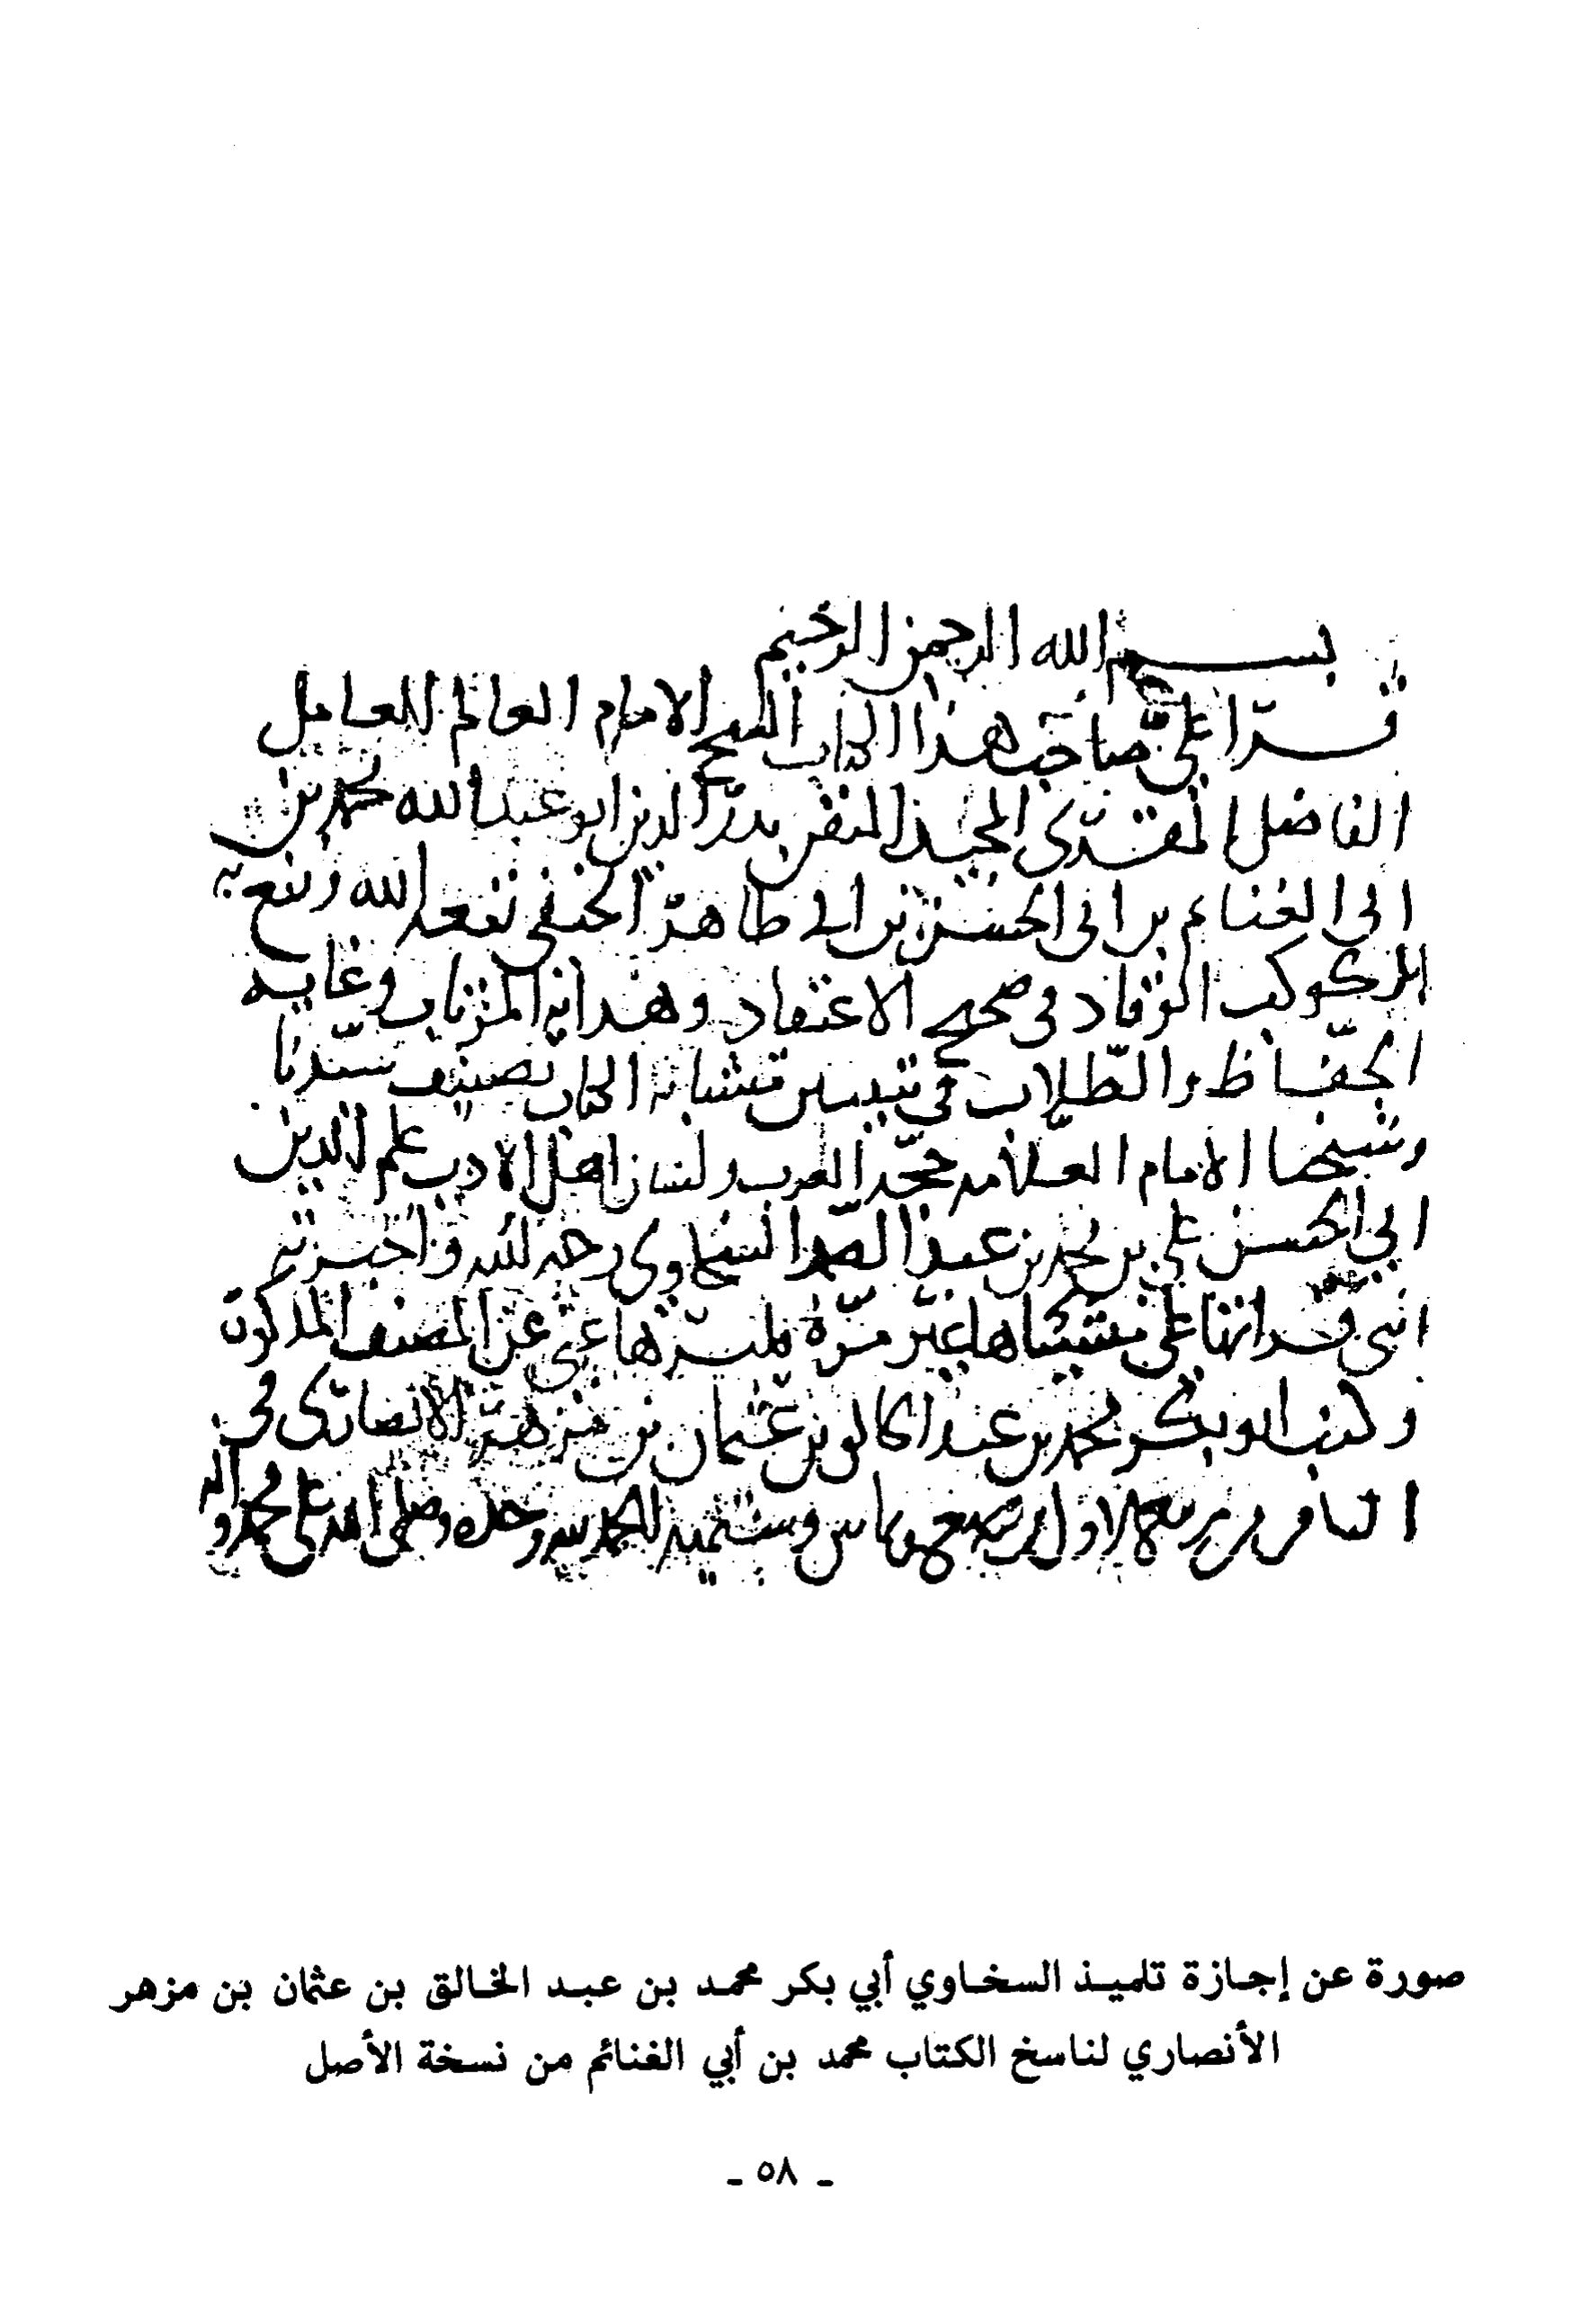 بسم الله الرحمن الرحيم
قرا علي صاحب هذا الكتاب الشيخ الامام العالم العامل
الفاضل المقرئ المجيد المتقن بدر الدين ابو عبد الله محمد بن
ابي الغنائم بن ابي الحسن بن ابي طاهر الحنفي نفعه الله ونفع به
الكوكب الوقاد في صحيح الاعتقاد وهداية المرتاب وغاية
الحفاظ والطلاب في تبيين متشابه الكتاب تصنيف سيدنا
وشيخنا الامام العلامة حجة العرب ولسان اهل الادب علم الدين
ابي الحسن علي بن محمد بن عبد الصمد السخاوي رحمه الله واخبرته
انني قراتها على منشئها غير مرة فليروها عني عن المصنف المذكور
وكتب ابو بكر محمد بن عبد الخالق بن عثمان بن مزهر الانصاري في
ربيع الاول وستمية الحمد لله وحده وصلى الله على محمد واله
صورة عن إجازة تلميذ السخاوي أبي بكر محمد بن عبد الخالق بن عثمان بن مزهر
الأنصاري لناسخ الكتاب محمد بن أبي الغنائم من نسخة الأصل
- ٥٨ -